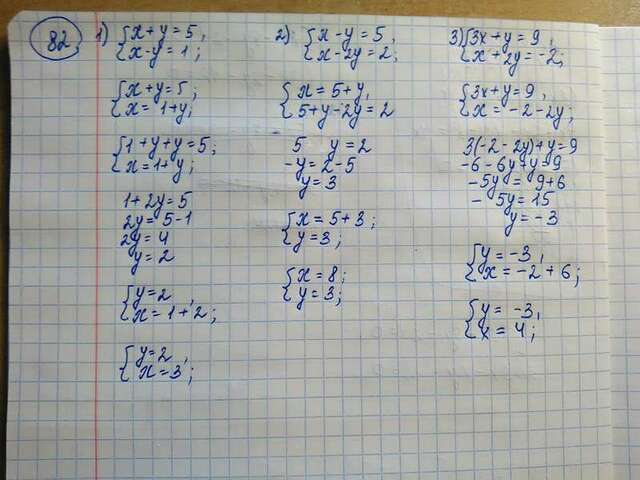 82
1) {x+y=5,
{x-y=1;
{x+y=5;
{x=1+y;
{1+y+y=5;
{x=1+y;
1+2y=5
2y=5-1
2y=4
y=2
{y=2,
{x=1+2;
{y=2,
{x=3;
2) {x-y=5,
{x-2y=2;
{x=5+y,
{5+y-2y=2
5 y=2
-y=2-5
y=3
{x=5+3;
{y=3;
{x=8;
{y=3;
3) {3x+y=9,
{x+2y=-2;
{3x+y=9,
{x=-2-2y;
3(-2-2y)+y=9
-6-6y+y=9
-5y=9+6
-5y=15
y=-3
{y=-3,
{x=-2+6;
{y=-3,
{x=4;